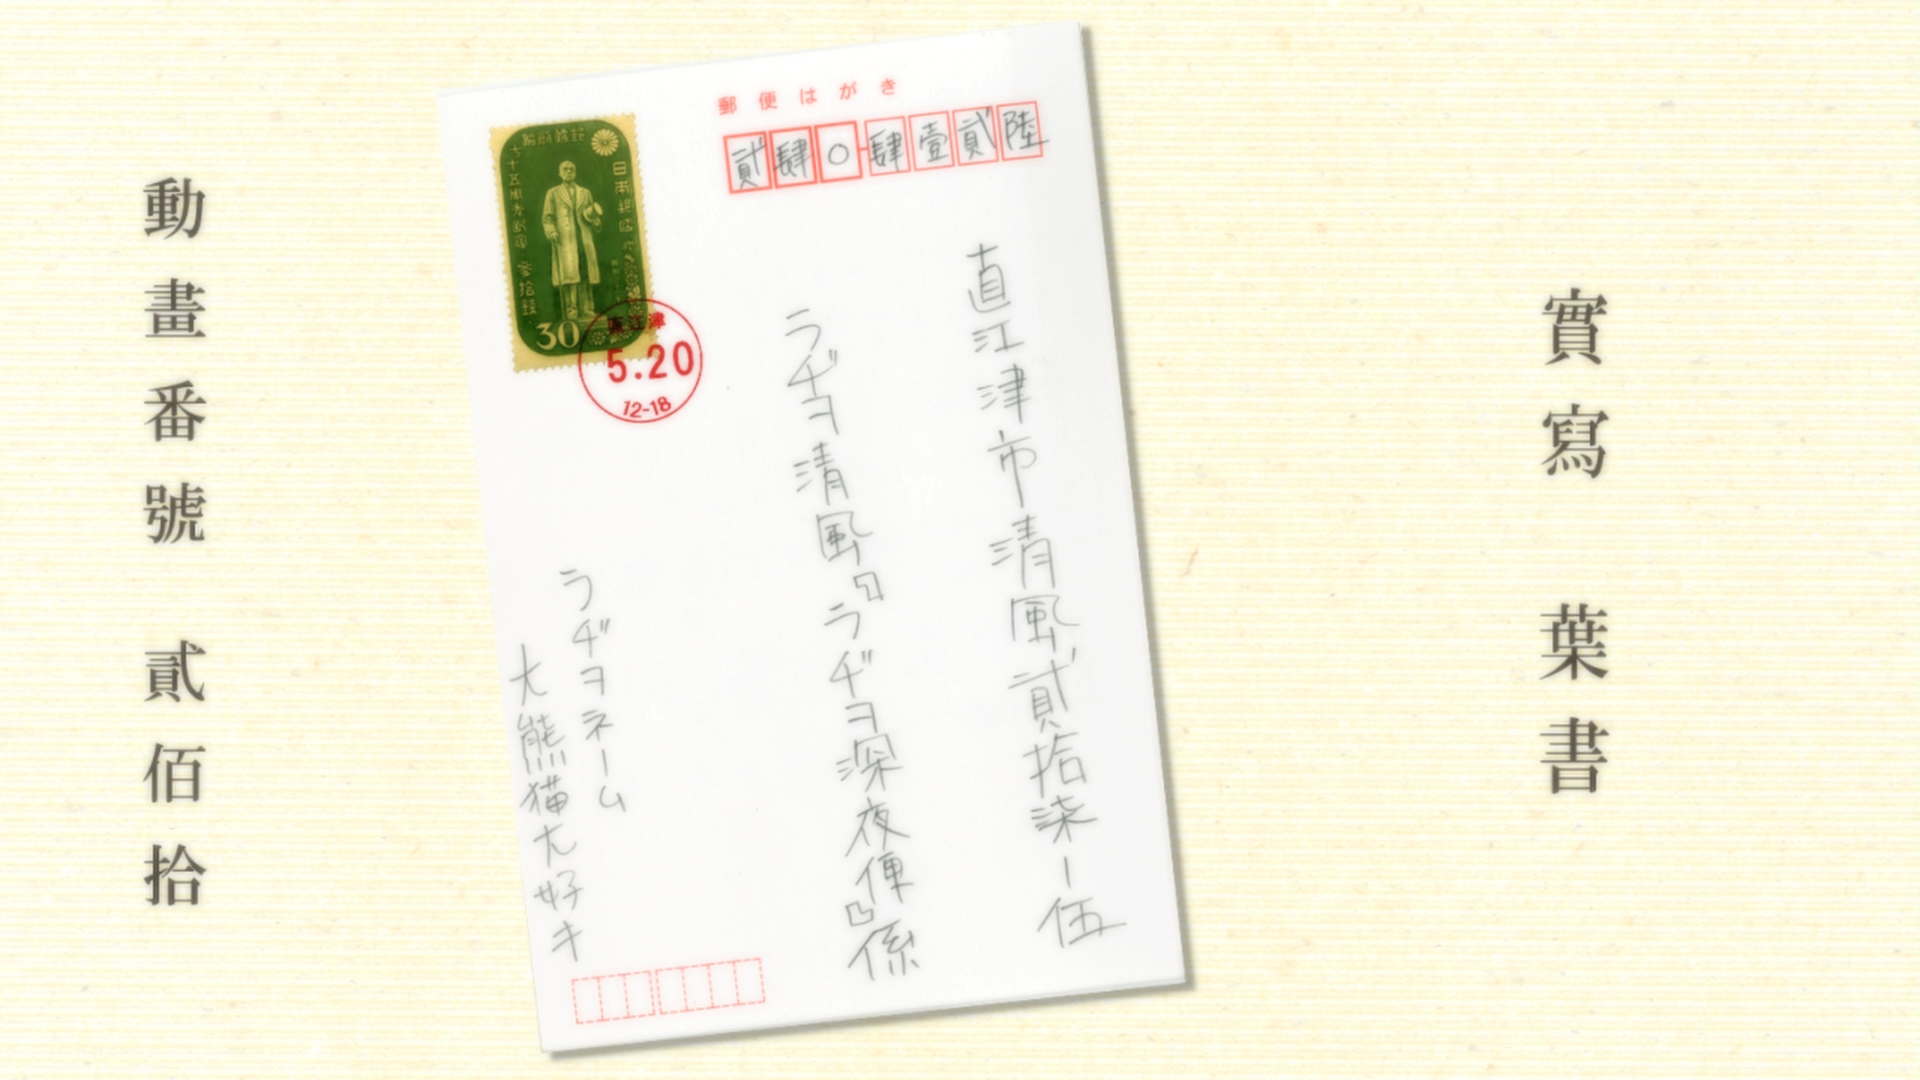 實寫 葉書
郵便はがき
貳肆〇肆壹貳陸
直江津市清風貳拾柒ー伍
ラヂヲ清風『ラヂヲ深夜便』係
ラヂヲネーム
大熊猫大好キ
日本郵便
30
直江津
5.20
12-18
動畫番號 貳佰拾